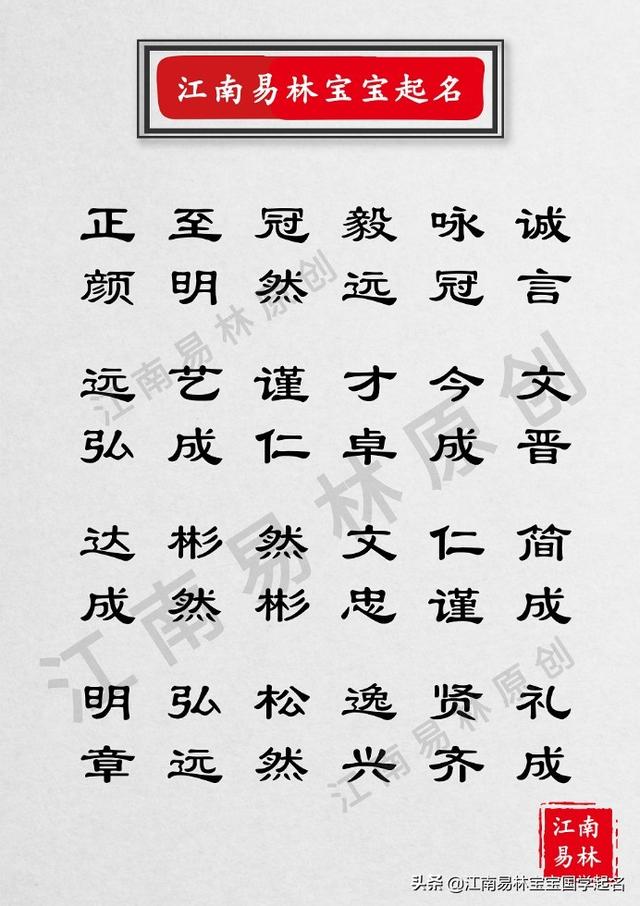 江南易林宝宝起名
正 至 冠 毅 咏 诚
颜 明 然 远 冠 言
远 艺 谨 才 今 文
弘 成 仁 卓 成 晋
达 彬 然 文 仁 简
成 然 彬 忠 谨 成
明 弘 松 逸 贤 礼
章 远 然 兴 齐 成
江南易林原创
江南易林原创
江南易林原创
江南
易林
头条 @江南易林宝宝国学起名